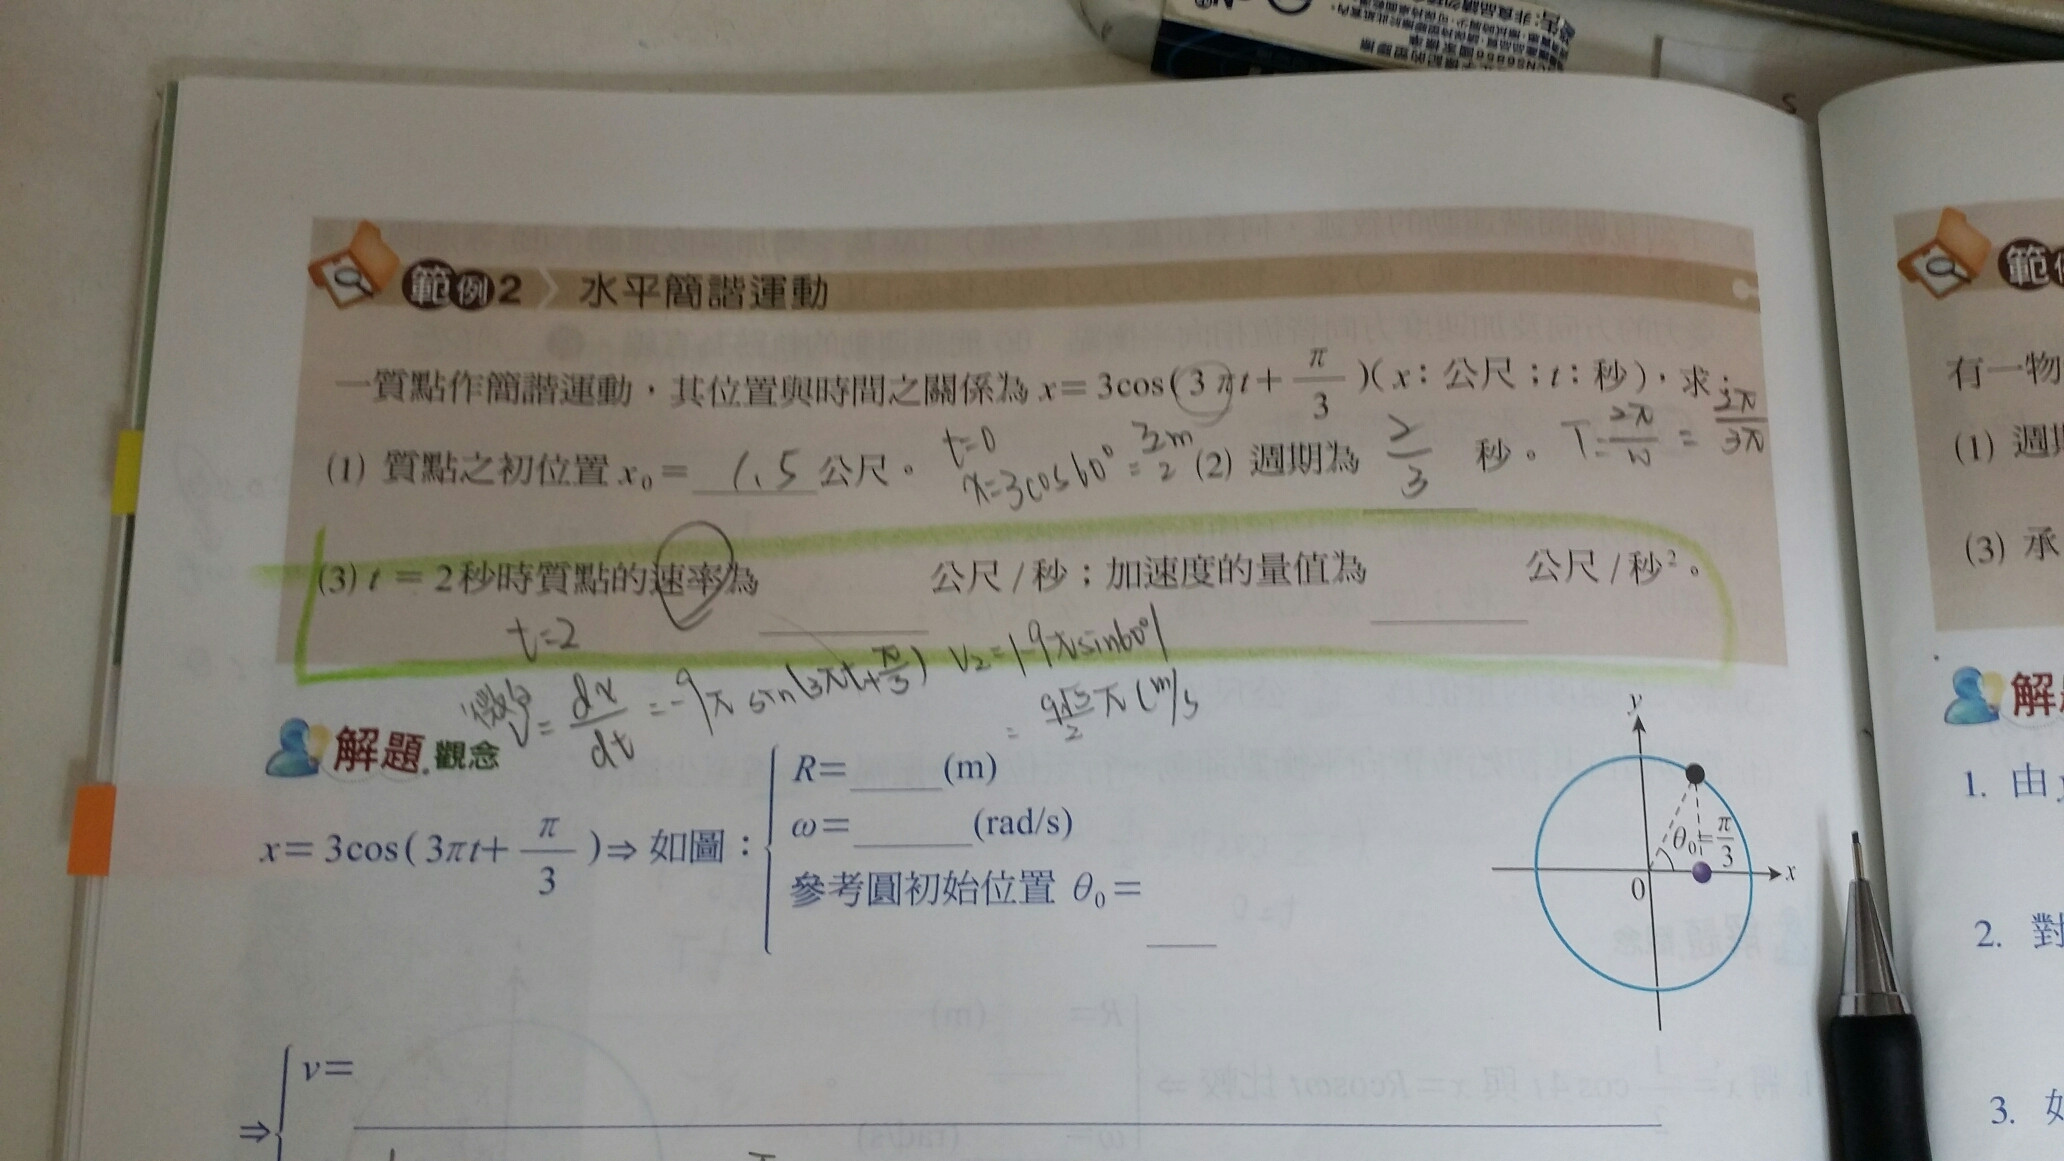 範例2 水平簡諧運動
一質點作簡諧運動，其位置與時間之關係為 x=3cos(3πt+π/3)(x：公尺；t：秒)，求：
(1) 質點之初位置 x₀= 1.5 公尺。 t=0 x=3cos60°=3/2 m (2) 週期為 2/3 秒。 T=2π/w=2π/3π
(3) t=2秒時質點的速率為 公尺/秒；加速度的量值為 公尺/秒²。
t=2
微分 v=dx/dt=-9π sin(3πt+π/3) v₂=|-9πsin60°|
=9√3/2 π (m/s
解題 觀念
x=3cos(3πt+π/3)⇒如圖：
R= (m)
ω= (rad/s)
參考圓初始位置 θ₀=
y
θ₀=π/3
0
x
⇒ v=
範
有一物
(1) 週
(3) 承
解
1. 由
2. 對
3. 如